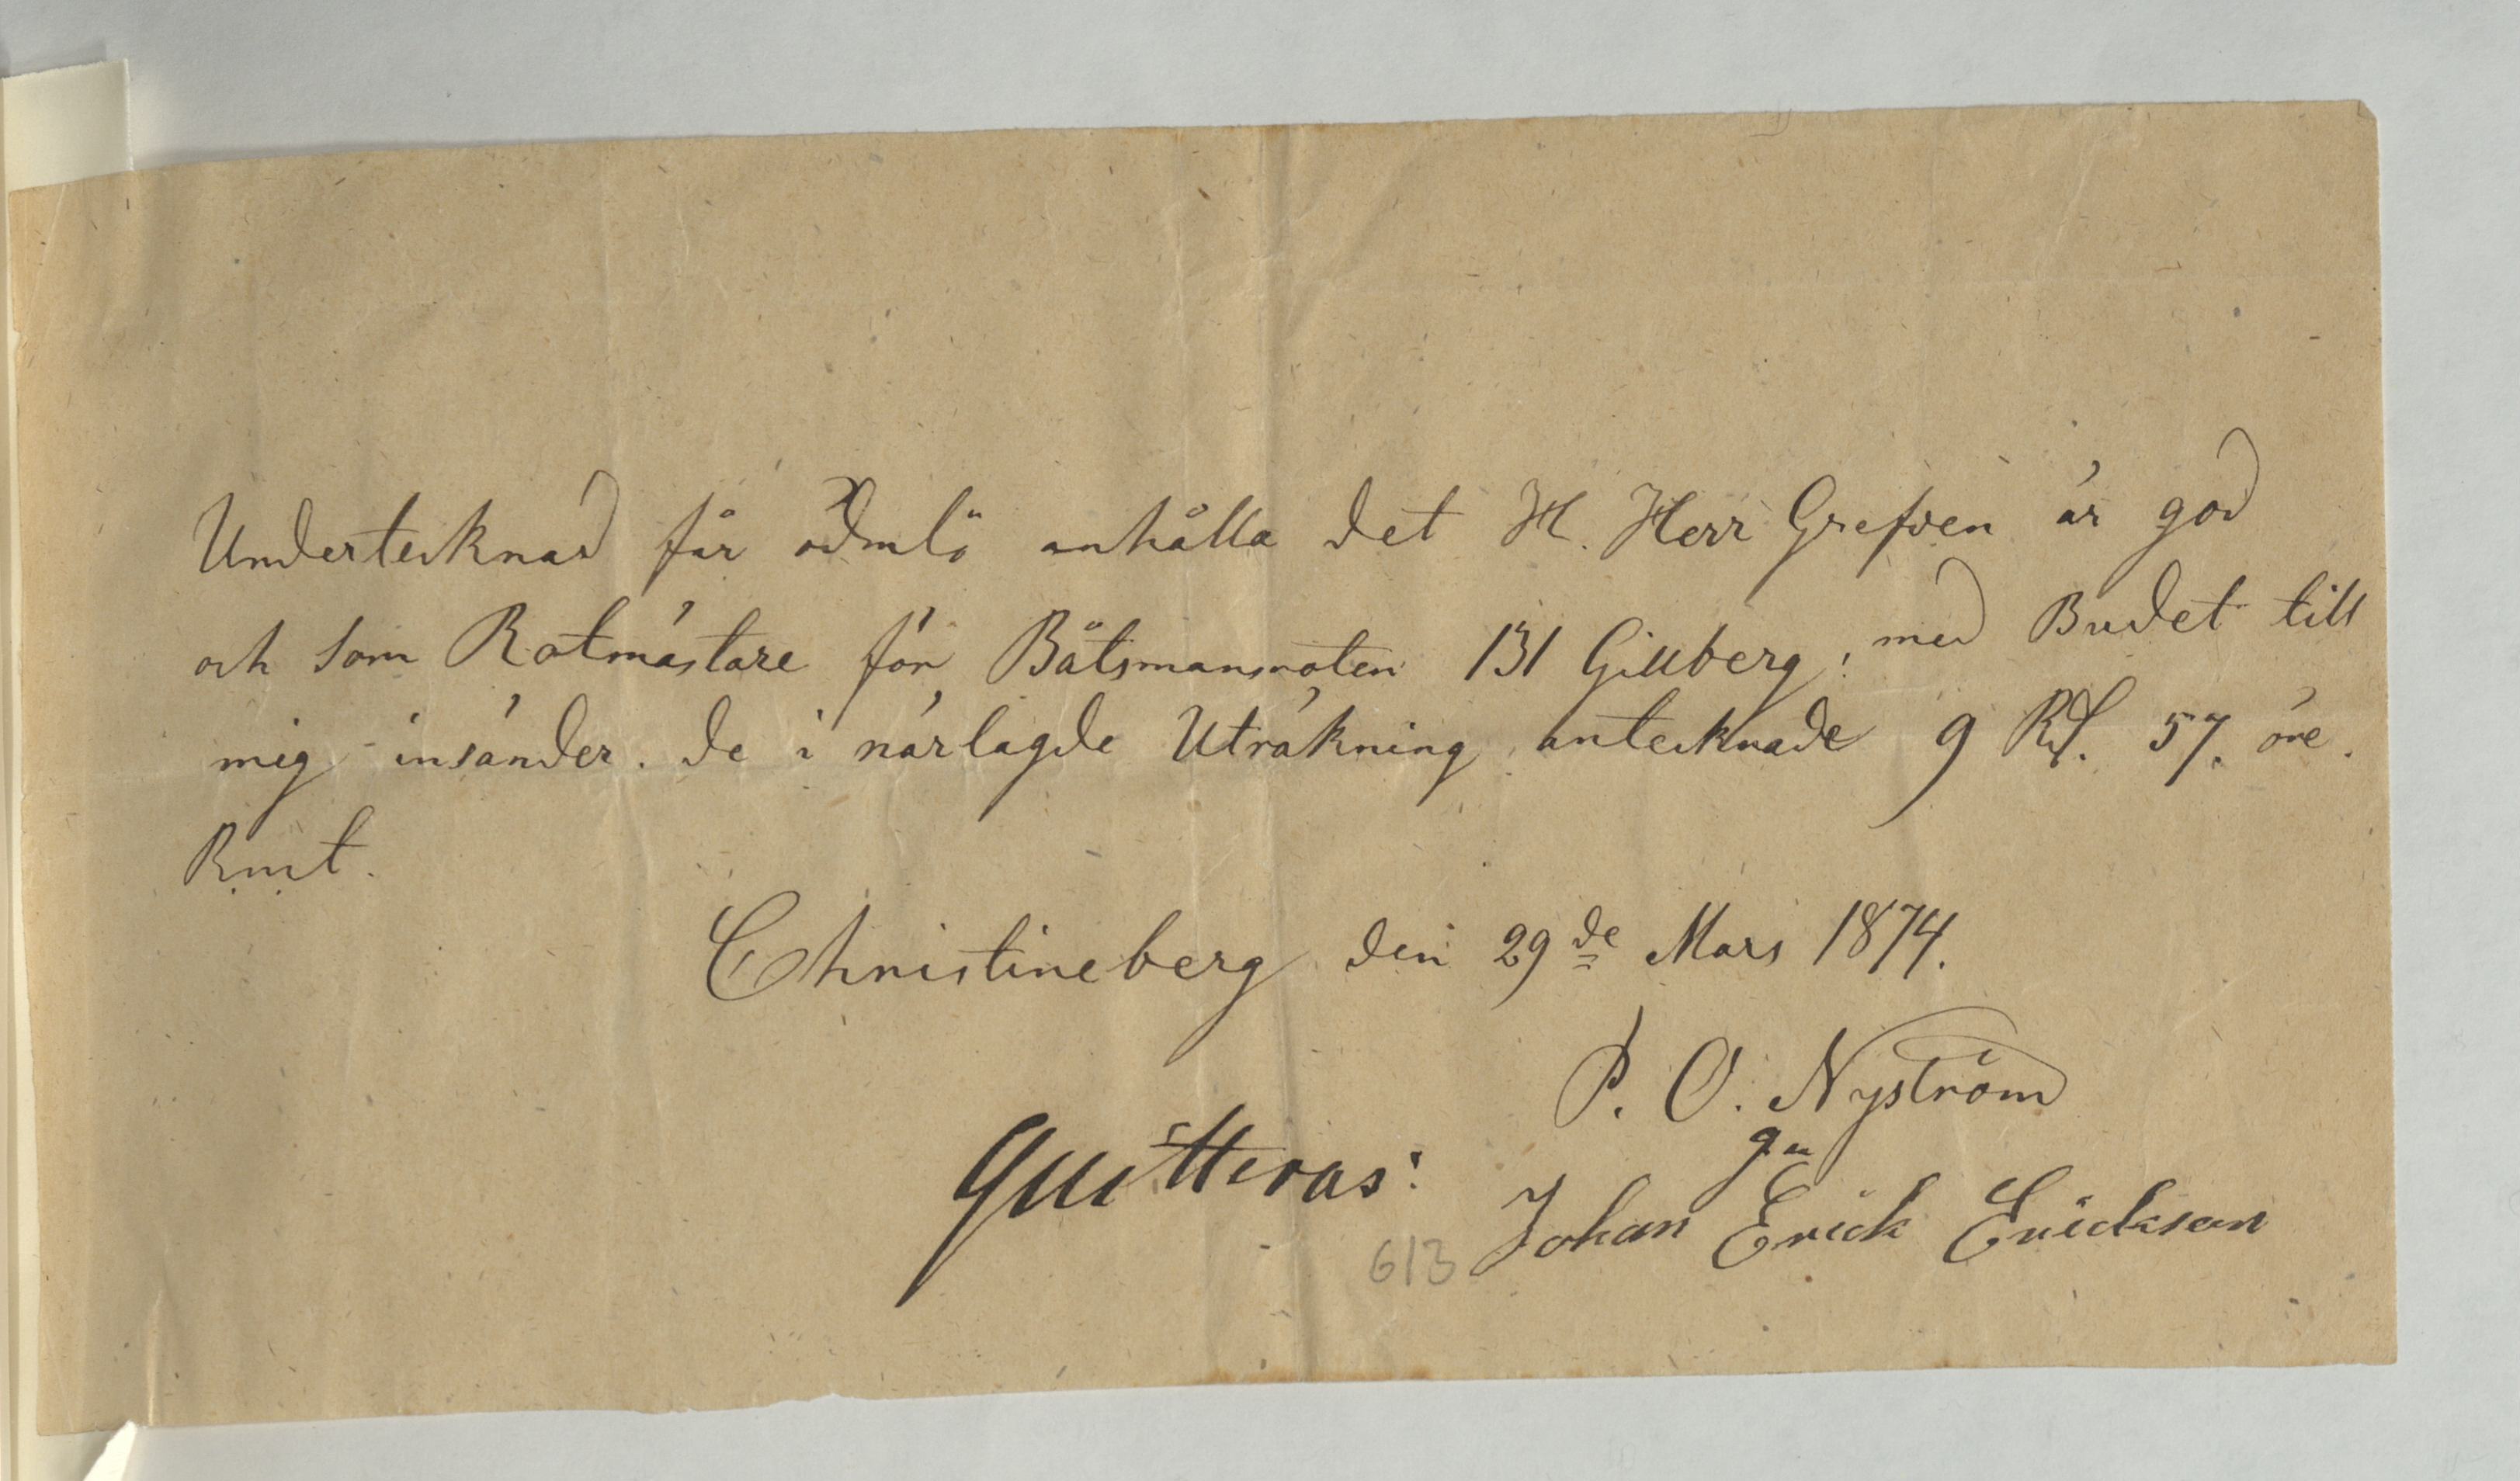 Undertecknad får ödml: anhålla det H. Herr Grefven är god
och som Rotmästare för Båtsmansroten 131 Gillberg, med Budet till
mig insänder. de i närlagde Uträkning antecknade 9 Rd. 57. öre.
Rmt.
Christineberg den 29de Mars 1874.
P. O. Nyström
gm
Quitteras:
Johan Erick Erickson
613